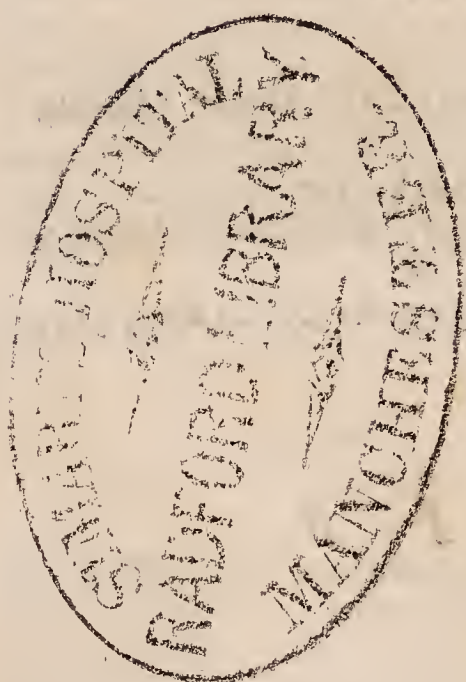 HOSPITAL
RADFORD LIBRARY
MANCHESTER